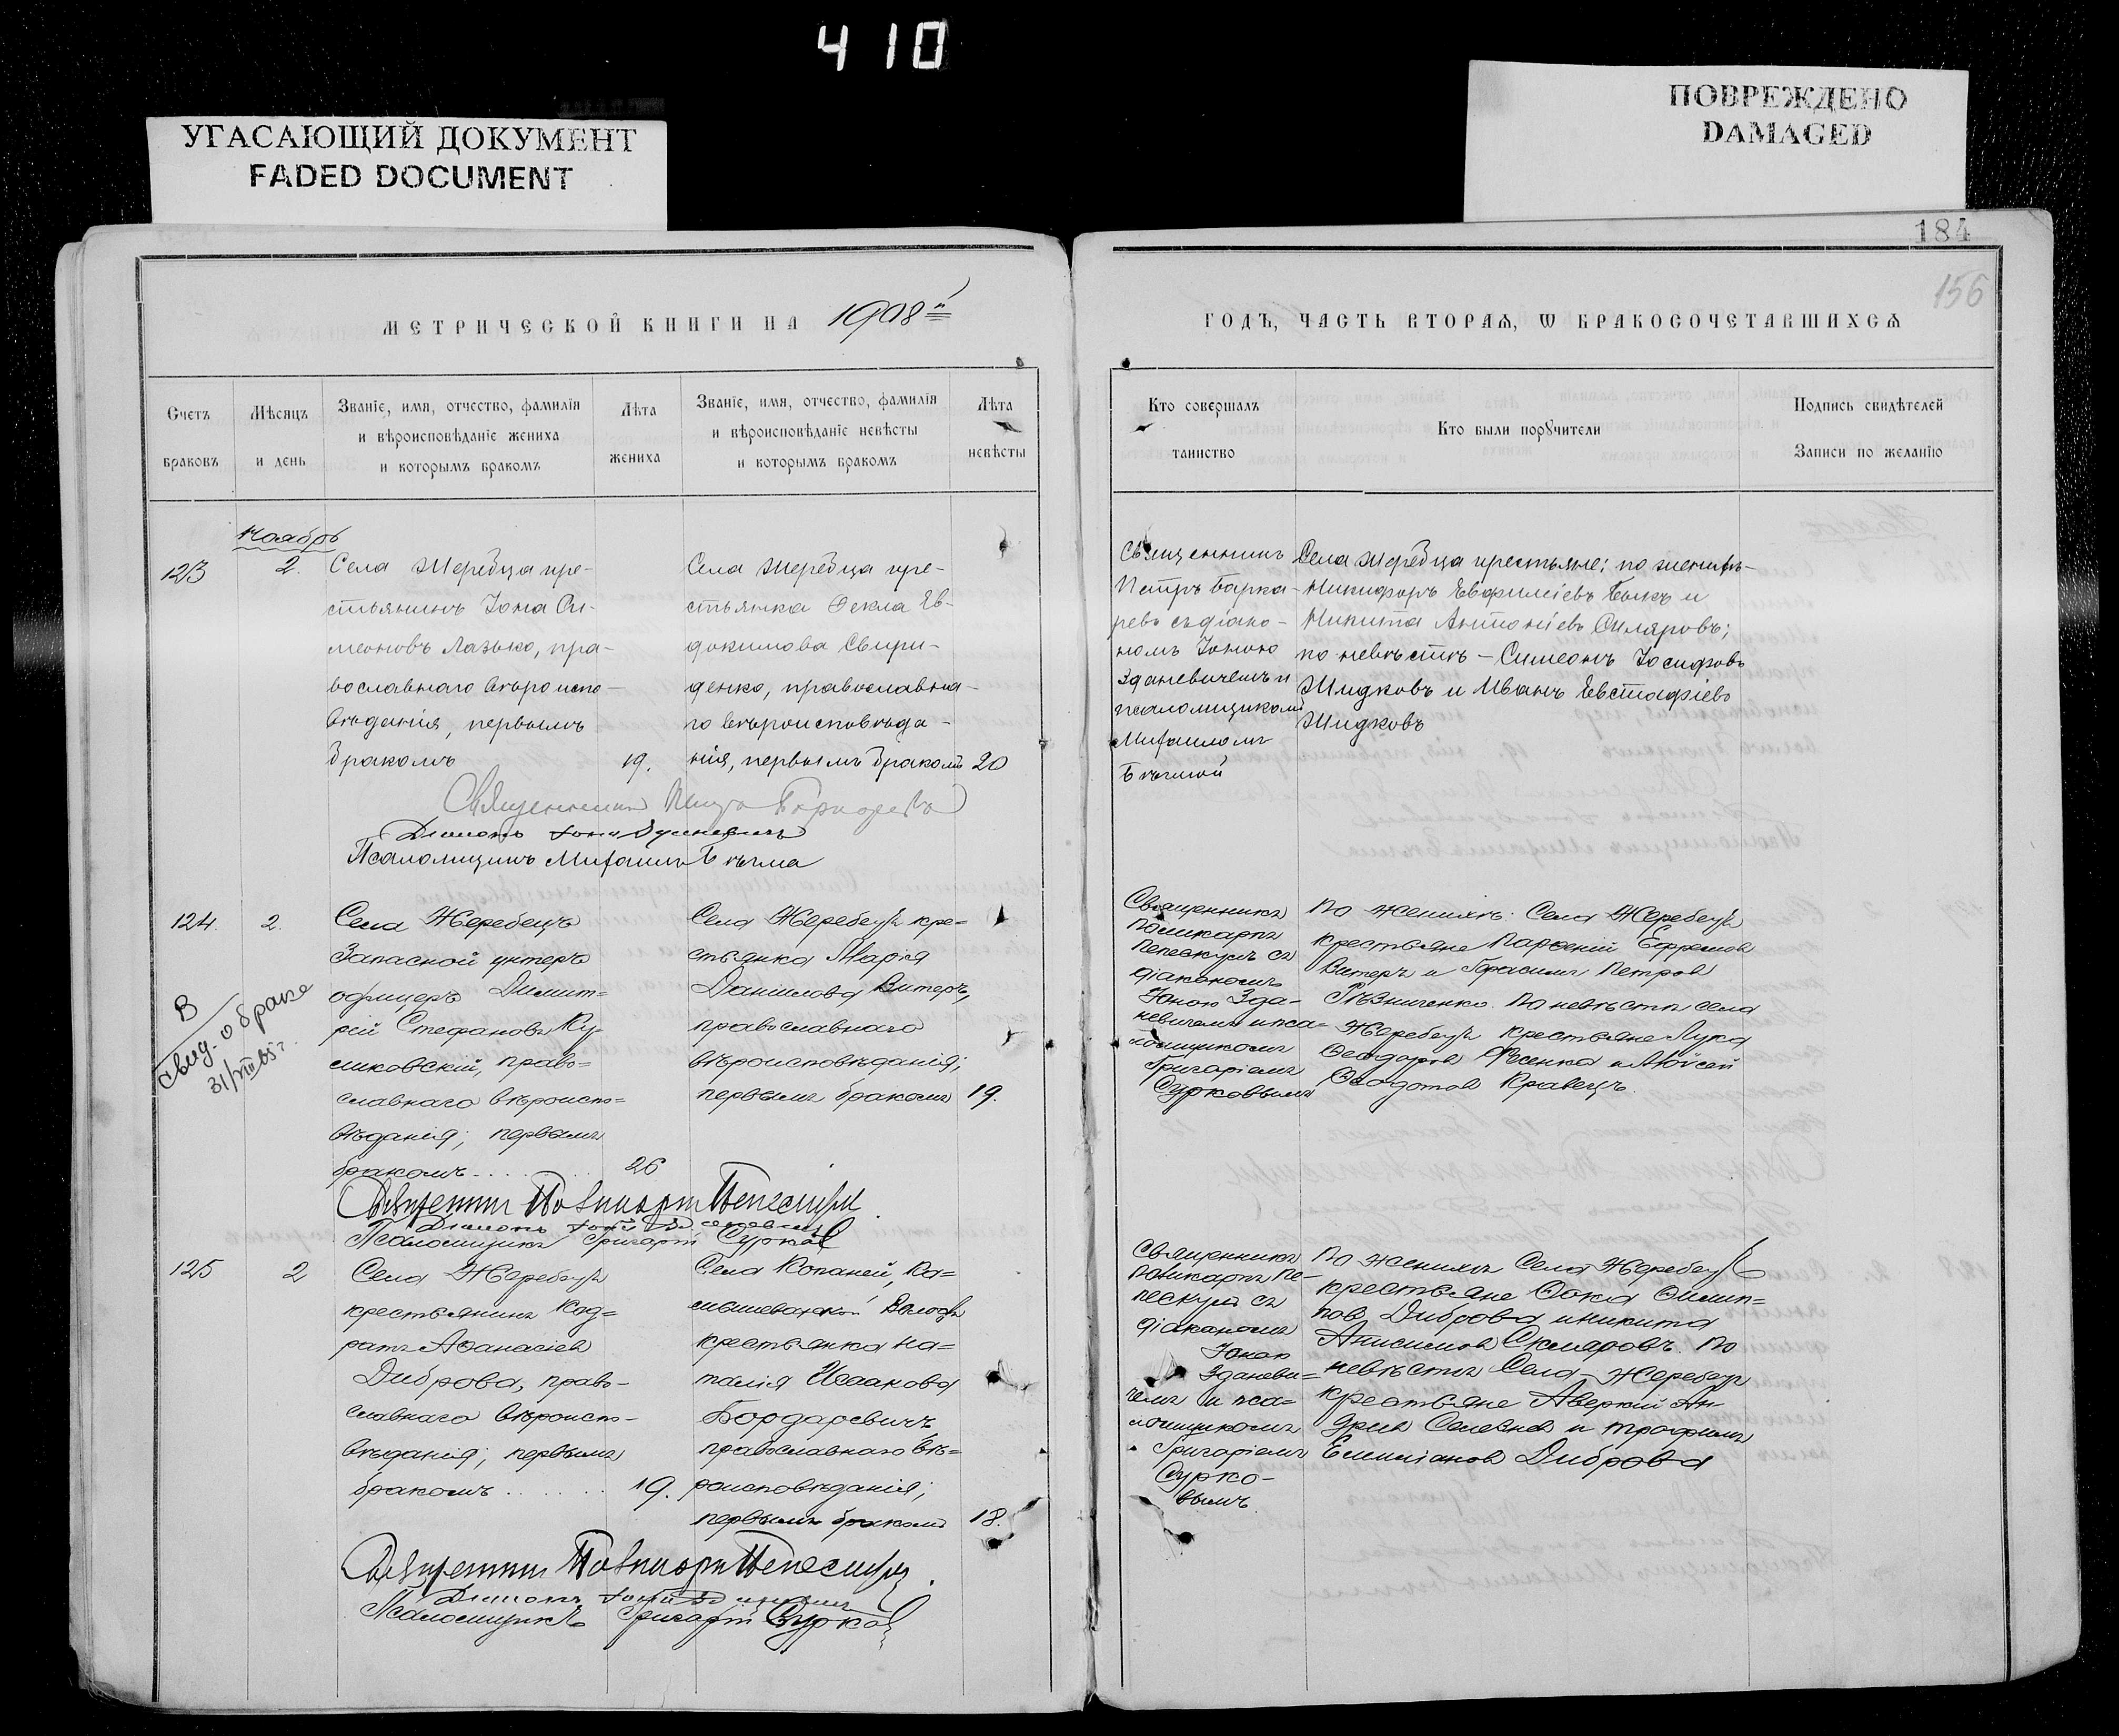 410
УГАСАЮЩИЙ ДОКУМЕНТ
FADED DOCUMENT
ПОВРЕЖДЕНО
DAMAGED
184
156
МЕТРИЧЕСКОЙ КНИГИ НА 1908й
ГОДЪ, ЧАСТЬ ВТОРАѦ, Ѡ БРАКОСОЧЕТАВШИХСѦ
Счетъ
браковъ
Мѣсяцъ
и день
Званіе, имя, отчество, фамилія
и вѣроисповѣданіе жениха
и которымъ бракомъ
Лѣта
жениха
Званіе, имя, отчество, фамилія
и вѣроисповѣданіе невѣсты
и которымъ бракомъ
Лѣта
невѣсты
Кто совершалъ
таинство
Кто были порꙋчители
Подпись свидѣтелей
Записи по желанію
Ноябрь
123
2.
Села Жеребца кре-
стьянинъ Іона Си-
меоновъ Лазько, пра-
вославнаго вѣроиспо-
вѣданія, первымъ
бракомъ
19.
Села Жеребца кре-
стьянка Ѳекла Ев-
докимова Свири-
денко, православна-
го вѣроисповѣда-
нія, первымъ бракомъ
20
Священникъ
Петръ Барка-
ревъ съ діако-
номъ Іоною
Зданевичемъ и
псаломщикомъ
Михаиломъ
Бѣгмой
Села Жеребца крестьяне: по женихѣ-
Никифоръ Евфиміевъ Быкъ и
Никита Антоніевъ Скляровъ;
по невѣстѣ - Симеонъ Іосифовъ
Жидковъ и Иванъ Евстафіевъ
Жидковъ
Священникъ Петръ Баркаревъ
Діаконъ Іона Зданевичъ
Псаломщикъ Михаилъ Бѣгма
124.
2.
Села Жеребецъ
Запасной унтеръ
офицеръ Димит=
рій Стефановъ Ку=
ликовскій, право=
славнаго вѣроиспо=
вѣданія; первымъ
бракомъ
26
В
свид. о браке
31/VIII 65 г.
Села Жеребецъ кре=
стьянка Марія
Даніилова Витеръ,
православнаго
вѣроисповѣданія;
первымъ бракомъ
19.
Священникъ
Поликарпъ
Пепескулъ съ
діакономъ
Іоною Зда-
невичемъ и пса=
ломщикомъ
Григоріемъ
Сурковымъ
По женихѣ: Села Жеребецъ
крестьяне Парѳеній Ефремовъ
Витеръ и Герасимъ Петровъ
Рѣзниченко. По невѣстѣ села
Жеребецъ крестьяне Лука
Ѳеодоровъ Фесенко и Моисей
Ѳеодотовъ Кравецъ.
Священникъ Поликарпъ Пепескулъ.
Діаконъ Іона Зданевичъ
Псаломщикъ Григорій Сурковъ
125
2
Села Жеребецъ
крестьянинъ Код=
ратъ Аѳанасіевъ
Диброва, право-
славнаго вѣроиспо-
вѣданія; первымъ
бракомъ
19.
Села Копаней, Ка=
мышевахской Волости
крестьянка На=
талія Исаакова
Бордаревичъ
православнаго вѣ=
роисповѣданія;
первымъ бракомъ
18.
Священникъ
Поликарпъ Пе-
пескулъ съ
діакономъ
Іоною
Зданеви=
чемъ и пса=
ломщикомъ
Григоріемъ
Сурко-
вымъ
По женихѣ Села Жеребецъ
крестьяне Ѳока Филип=
повъ Диброва и Никита
Анисимовъ Скляровъ. По
невѣстѣ Села Жеребецъ
крестьяне Аверкій Ан-
дреевъ Селезнев и Трофимъ
Емиліановъ Диброва
Священникъ Поликарпъ Пепескулъ.
Діаконъ Іона Зданевичъ
Псаломщикъ Григорій Сурковъ